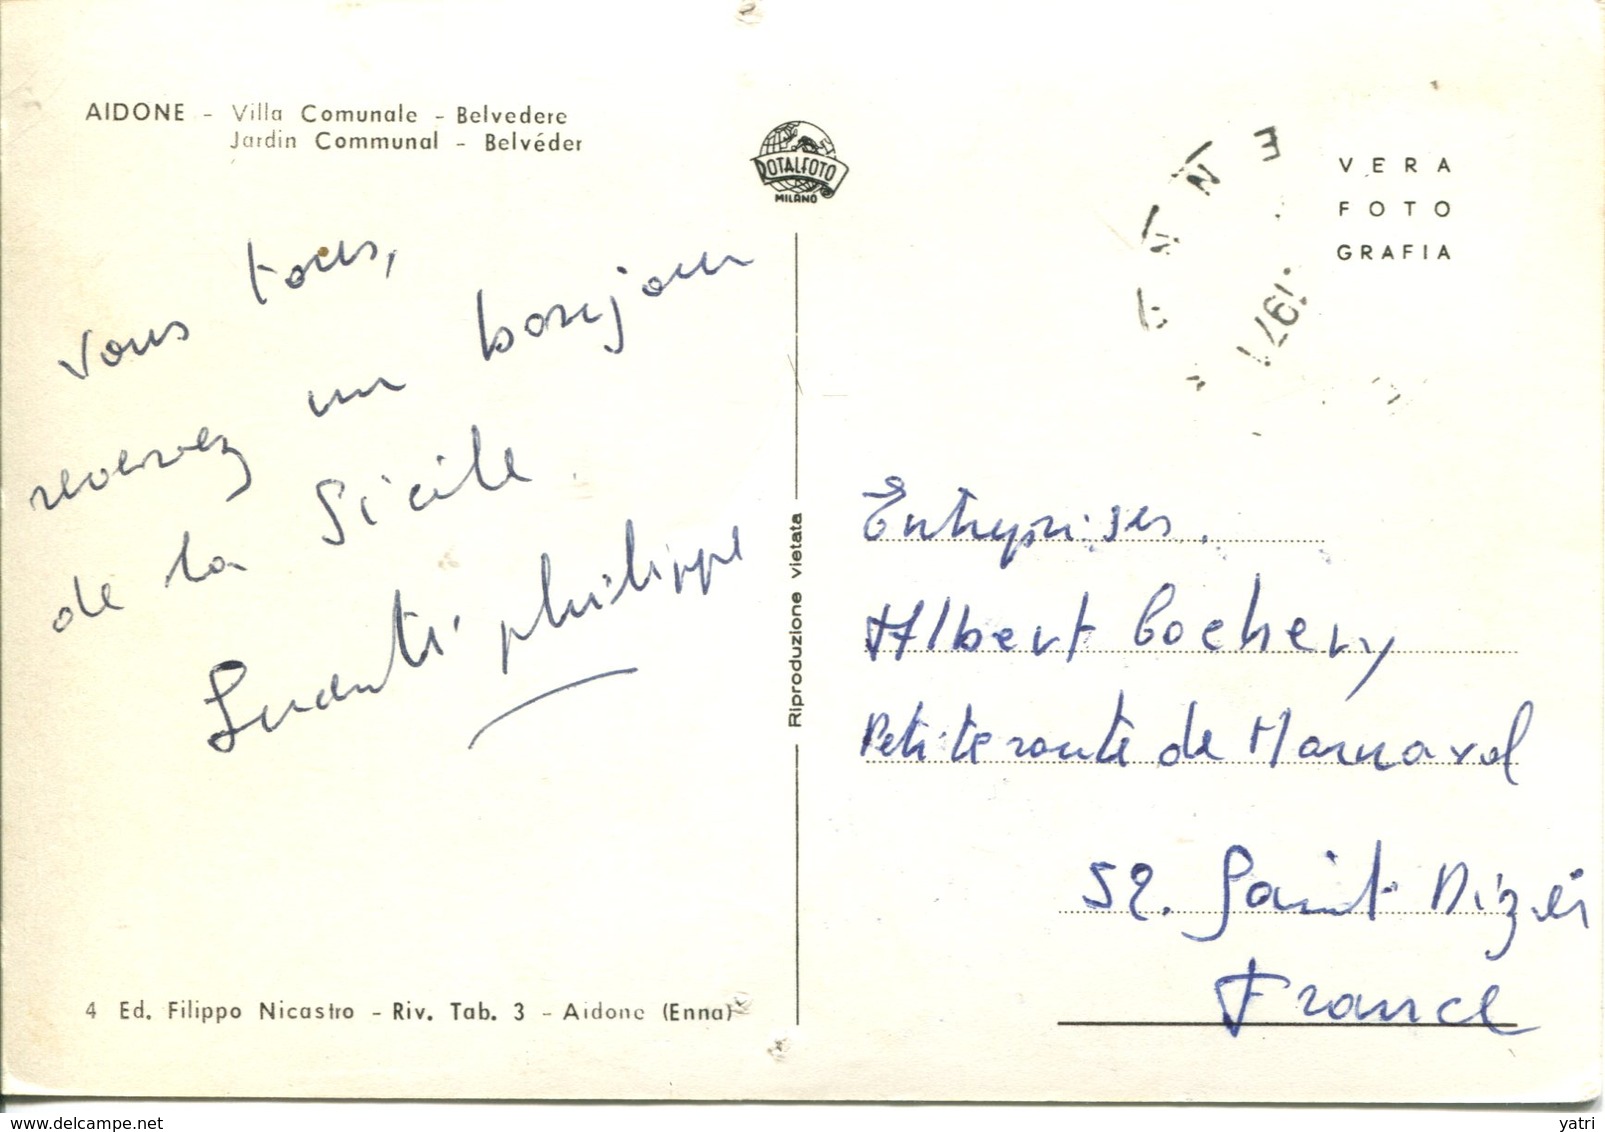 AIDONE - Villa Comunale - Belvedere
Jardin Communal - Belvéder
ROTALFOTO
MILANO
VERA
FOTO
GRAFIA
1971
vous tous,
recevez un bonjour
de la Sicile.
philippe
Riproduzione vietata
Entreprises.
Albert Cochery
Petite route de Marnaval
52. Saint Dizier
France
4 Ed. Filippo Nicastro - Riv. Tab. 3 - Aidone (Enna)
delcampe.net
yatri